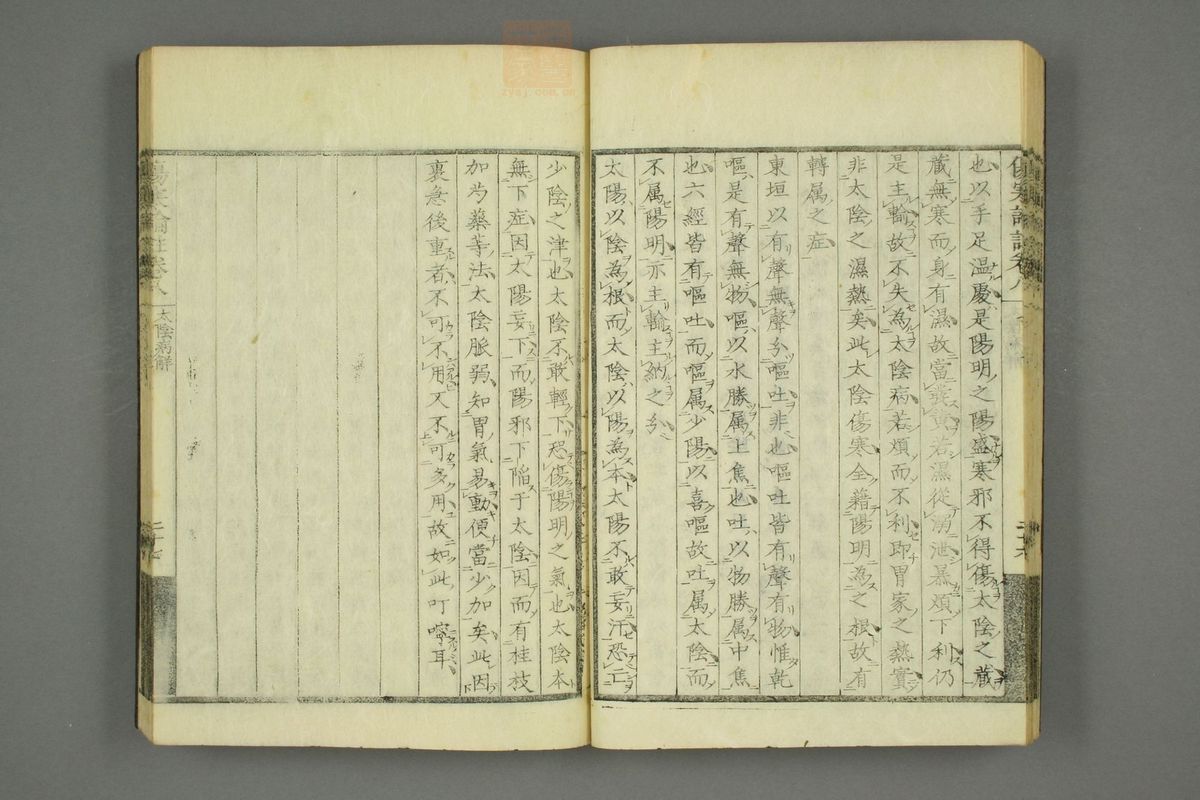 傷寒論註卷八
也以手足温處是陽明之陽盛寒邪不得傷太陰之藏
藏無寒而身有濕故當發黃若濕從湧泄暴煩下利仍
是主輸故不失為太陰病若煩而不利即胃家之熱實
非太陰之濕熱矣此太陰傷寒全藉陽明為之根故有
轉属之症
東垣以有聲無聲分嘔吐非也嘔吐皆有聲有物惟乾
嘔是有聲無物嘔以水勝属上焦也吐以物勝属中焦
也六經皆有嘔吐而嘔属少陽以喜嘔故吐属太陰而
不属陽明亦主輸主納之分
太陽以陰為根而太陰以陽為本太陽不敢妄汗恐亡
少陰之津也太陰不敢輕下恐傷陽明之氣也太陰本
無下症因太陽妄下而陽邪下陷于太陰因而有桂枝
加芍藥等法太陰脈弱知胃氣易動便當少加矣此因
裏急後重者不可不用又不可多用故如此叮嚀耳
太陰病解
二十七
zysj.com.cn